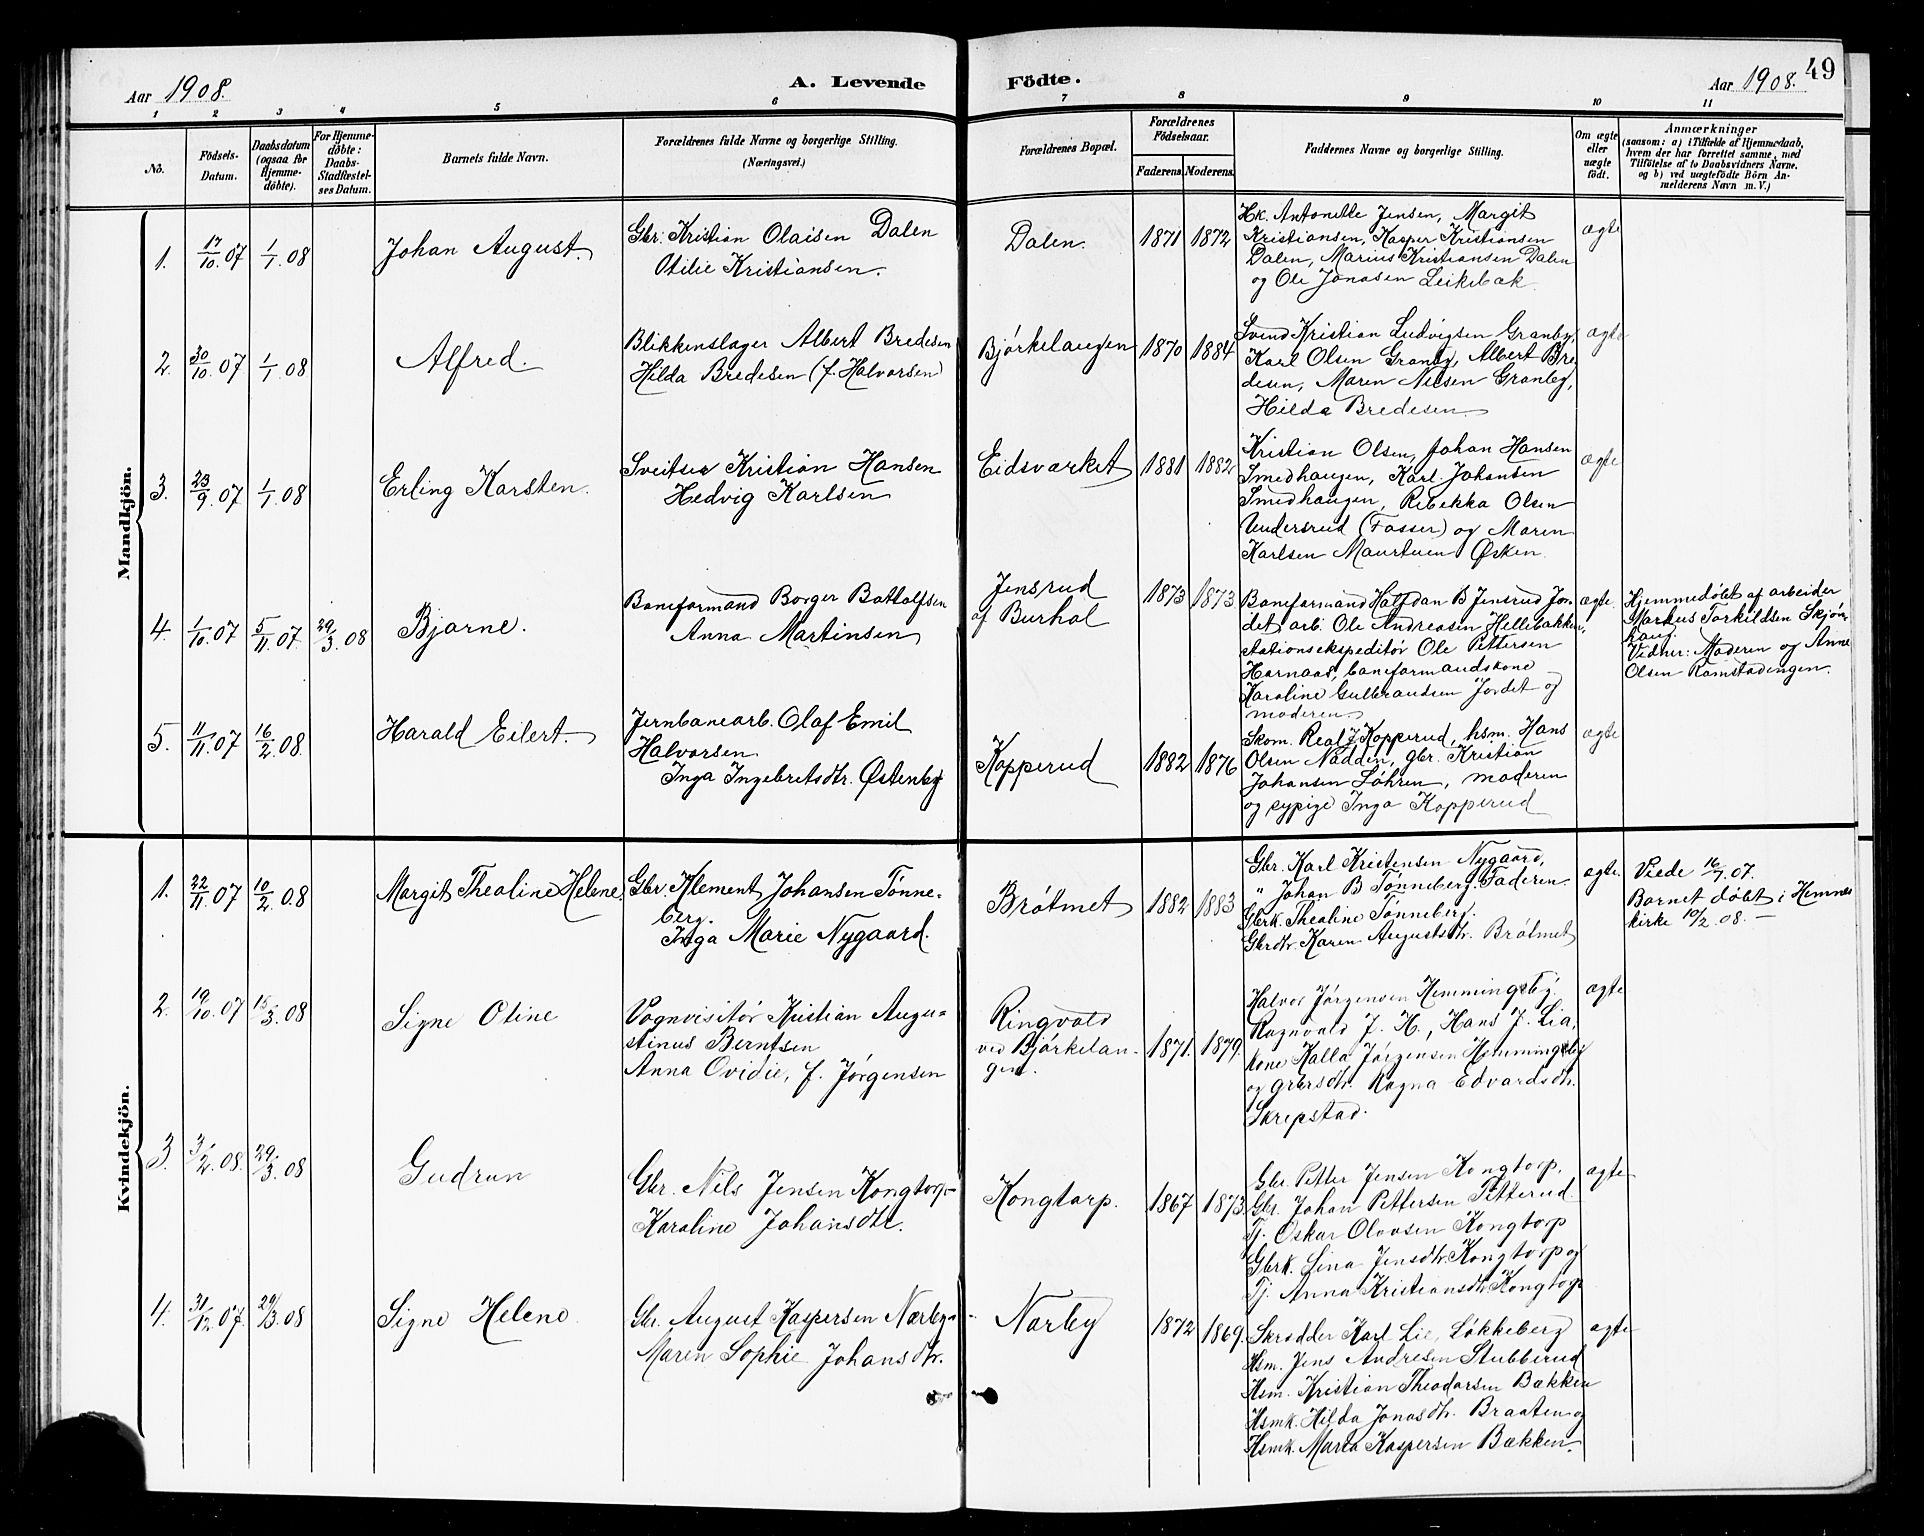 Aar 1908.
A. Levende
Födte.
Aar 1908.
49
1 2 3 4 5 6 7 8 9 10 11
No.
Födsels-Datum.
Daabsdatum (ogsaa for Hjemme-döbte).
For Hjemme-döbte: Daabs-Stadfæstelses Datum.
Barnets fulde Navn.
Forældrenes fulde Navne og borgerlige Stilling.
(Næringsvei.)
Forældrenes Bopæl.
Forældrenes Födselsaar.
Faderens. Moderens.
Faddernes Navne og borgerlige Stilling.
Om ægte eller uægte födt.
Anmærkninger
(saasom: a) i Tilfælde af Hjemmedaab,
hvem der har forrettet samme, med
Tilföielse af to Daabsvidners Navne.
og b) ved uægtefödte Börn An-
melderens Navn m. V.)
Mandkjön.
1. 17/10.07 1/1.08 Johan August.
Gbr. Kristian Olaisen Dalen
Otilie Kristiansen.
Dalen. 1871 1872
Hk. Antonette Jensen, Margit
Kristiansen, Kasper Kristiansen
Dalen, Marius Kristiansen Dalen
og Ole Jonasen Leikebæk.
ægte
2. 30/10.07 1/1.08 Alfred.
Blikkenslager Albert Bredesen
Hilda Bredesen (f. Halvorsen)
Bjørkelangen 1870 1884
Svend Kristian Ludvigsen Granby,
Karl Olsen Granby, Albert Bre-
desen, Maren Nilsen Granby,
Hilda Bredesen
ægte
3. 23/9.07 1/1.08 Erling Karsten.
Sveitser Kristian Hansen
Hedvig Karlsen
Eidsværket 1881 1882
Kristian Olsen, Johan Hansen
Smedhaugen, Karl Johansen
Smedhaugen, Rebekka Olsen
Undersrud (Fosser) og Maren
Karlsen Maurtuen Øsken.
ægte
4. 1/10.07 5/11.07 29/3.08 Bjarne.
Baneformand Borger Bottolfsen
Anna Martinsen
Jensrud
af Burhol
1873 1873.
Baneformand Halfdan B Jensrud Jor-
det, arb. Ole Andreasen Hellebakken,
stationsekspeditør Ole Pettersen
Hornaas, baneformandskone
Karoline Gulbrandsen Jordet og
moderen
ægte.
Hjemmedøbt af arbeider
Markus Torkildsen Skjøn-
haug.
Vidner: Moderen og Anne
Olsen Ramstadengen.
5. 11/11.07 16/2.08. Harald Eilert.
Jernbanearb. Olaf Emil
Halvorsen
Inga Ingebretsdtr. Østenby
Kopperud 1882 1876
Skom. Real J. Kopperud, hsm. Hans
Olsen Nadden, gbr. Kristian
Johansen Løhren, moderen
og sypige Inga Kopperud
ægte
Kvindekjön.
1. 22/11.07 10/2.08 Margit Thealine Helene.
Gbr. Klement Johansen Tønne-
berg.
Inga Marie Nygaard.
Brøtmet 1882 1883
Gbr. Karl Kristensen Nygaard,
" Johan B Tønneberg. Faderen.
Gbrk. Thealine Tønneberg.
Gbrdtr. Karen Augustsdtr. Brøtmet
ægte.
Viede 16/7.07.
Barnet døbt i Hemnes
kirke 10/2.08. —
2. 19/10.07 15/3.08 Signe Otine
Vognvisitør Kristian Augu-
stinus Berntsen
Anna Ovidie, f. Jørgensen
Ringvold
ved Bjørkelan-
gen.
1871. 1879.
Halvor Jørgensen Hemmingsby
Ragnvald J. H., Hans J. Lia,
kone Kalla Jørgensen Hemmingsby
og grbrsdtr. Ragna Edvardsdtr.
Skrepstad.
ægte
3. 3/2.08. 29/3.08 Gudrun
Gbr. Nils Jensen Kongtorp
Karoline Johansdtr.
Kongtorp. 1867 1873.
Gbr. Petter Jensen Kongtorp.
Gbr. Johan Pettersen Fetterud.
Tj. Oskar Olavsen Kongtorp
Gbrk. Lina Jensdtr. Kongtorp og
Tj. Anna Kristiansdtr. Kongtorp
ægte
4. 31/12.07. 29/3.08 Signe Helene
Gbr. August Kaspersen Nærby
Maren Sophie Johansdtr.
Nærby 1872 1869.
Skrædder Karl Lie, Løkkeberg
Hsm. Jens Andresen Stubberud
Hsm. Kristian Theodorsen Bækken
Hsmk. Hilda Jonasdtr. Braaten og
Hsmk. Marta Kaspersen Bækken.
ægte